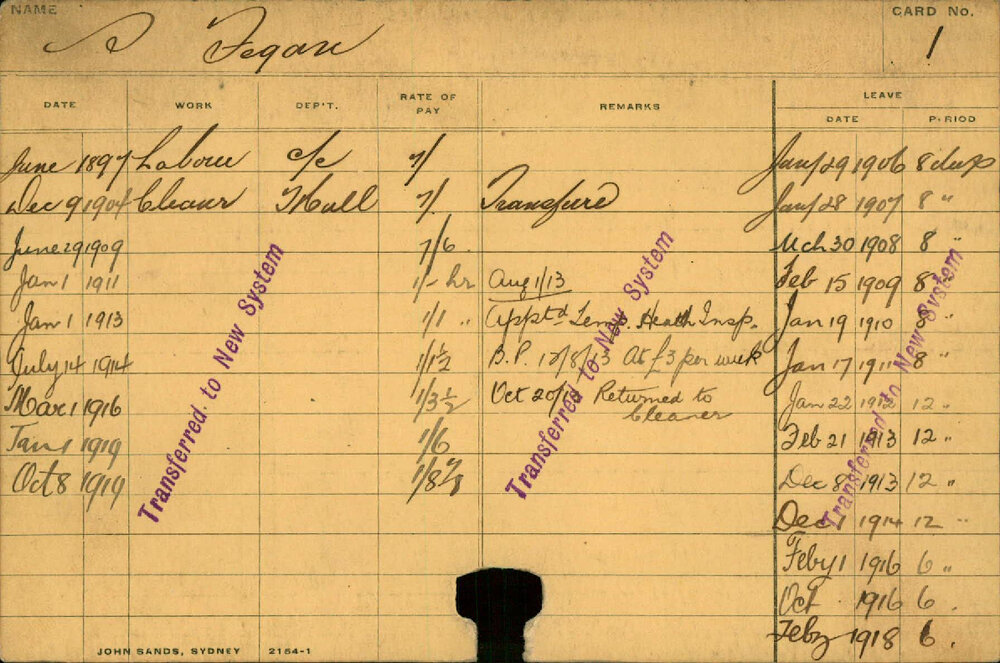 NAME
Fegan
CARD No.
1
DATE WORK DEP'T. RATE OF PAY REMARKS LEAVE
DATE PERIOD
June 1897 Labour c/c 7/ Jany 29 1906 8 days
Dec 9 1904 Cleaner T Hall 7/. Transfured Jany 28 1907 8 "
June 29 1909 7/6 Mch 30 1908 8 "
Jan 1 1911 1/- hr Aug 1/13 Feb 15 1909 8 "
Jan 1 1913 1/1 " Apptd Temp. Health Insp. Jan 19 1910 8 "
July 14 1914 1/1½ B.P. 12/8/13 At £3 per week Jan 17 1911 8 "
Mar 1 1916 1/3½ Oct 20/13 Returned to Cleaner Jan 22 1912 12 "
Jan 1 1919 1/6 Feb 21 1913 12 "
Oct 8 1919 1/8 Dec 8 1913 12 "
Dec 1 1914 12 "
Feby 1 1916 6 "
Oct 1916 6 .
Feby 1918 6 .
Transferred to New System
Transferred to New System
Transferred to New System
JOHN SANDS, SYDNEY 2154-1